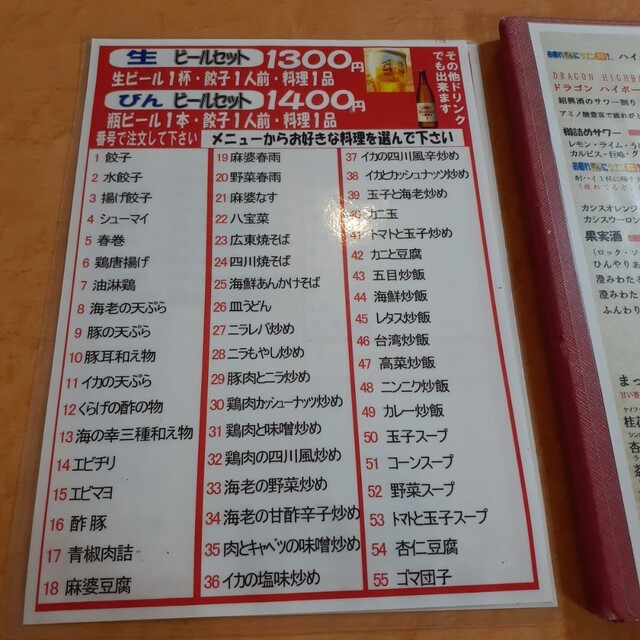 生 ビールセット 1300円
生ビール1杯・餃子1人前・料理1品
びん ビールセット 1400円
瓶ビール1本・餃子1人前・料理1品
その他ドリンク
でも出来ます
番号で注文して下さい メニューからお好きな料理を選んで下さい
1 餃子
2 水餃子
3 揚げ餃子
4 シューマイ
5 春巻
6 鶏唐揚げ
7 油淋鶏
8 海老の天ぷら
9 豚の天ぷら
10 豚耳和え物
11 イカの天ぷら
12 くらげの酢の物
13 海の幸三種和え物
14 エビチリ
15 エビマヨ
16 酢豚
17 青椒肉詰
18 麻婆豆腐
19 麻婆春雨
20 野菜春雨
21 麻婆なす
22 八宝菜
23 広東焼そば
24 四川焼そば
25 海鮮あんかけそば
26 皿うどん
27 ニラレバ炒め
28 ニラもやし炒め
29 豚肉とニラ炒め
30 鶏肉カッシューナッツ炒め
31 鶏肉と味噌炒め
32 鶏肉の四川風炒め
33 海老の野菜炒め
34 海老の甘酢辛子炒め
35 肉とキャベツの味噌炒め
36 イカの塩味炒め
37 イカの四川風辛炒め
38 イカとカッシュナッツ炒め
39 玉子と海老炒め
40 カニ玉
41 トマトと玉子炒め
42 カニと豆腐
43 五目炒飯
44 海鮮炒飯
45 レタス炒飯
46 台湾炒飯
47 高菜炒飯
48 ニンニク炒飯
49 カレー炒飯
50 玉子スープ
51 コーンスープ
52 野菜スープ
53 トマトと玉子スープ
54 杏仁豆腐
55 ゴマ団子
ハイ
DRAGON HIGHB
ドラゴン ハイボー
紹興酒のサワー割り
アミノ酸豊富で疲れがと
樽詰めサワー
レモン・ライム・
カルピス・巨峰・
カシスオレンジ
カシスウーロン
果実酒
(ロック・ソ
ひんやりあ
澄みわたる
澄みわた
ふんわり
まっ
甘い香